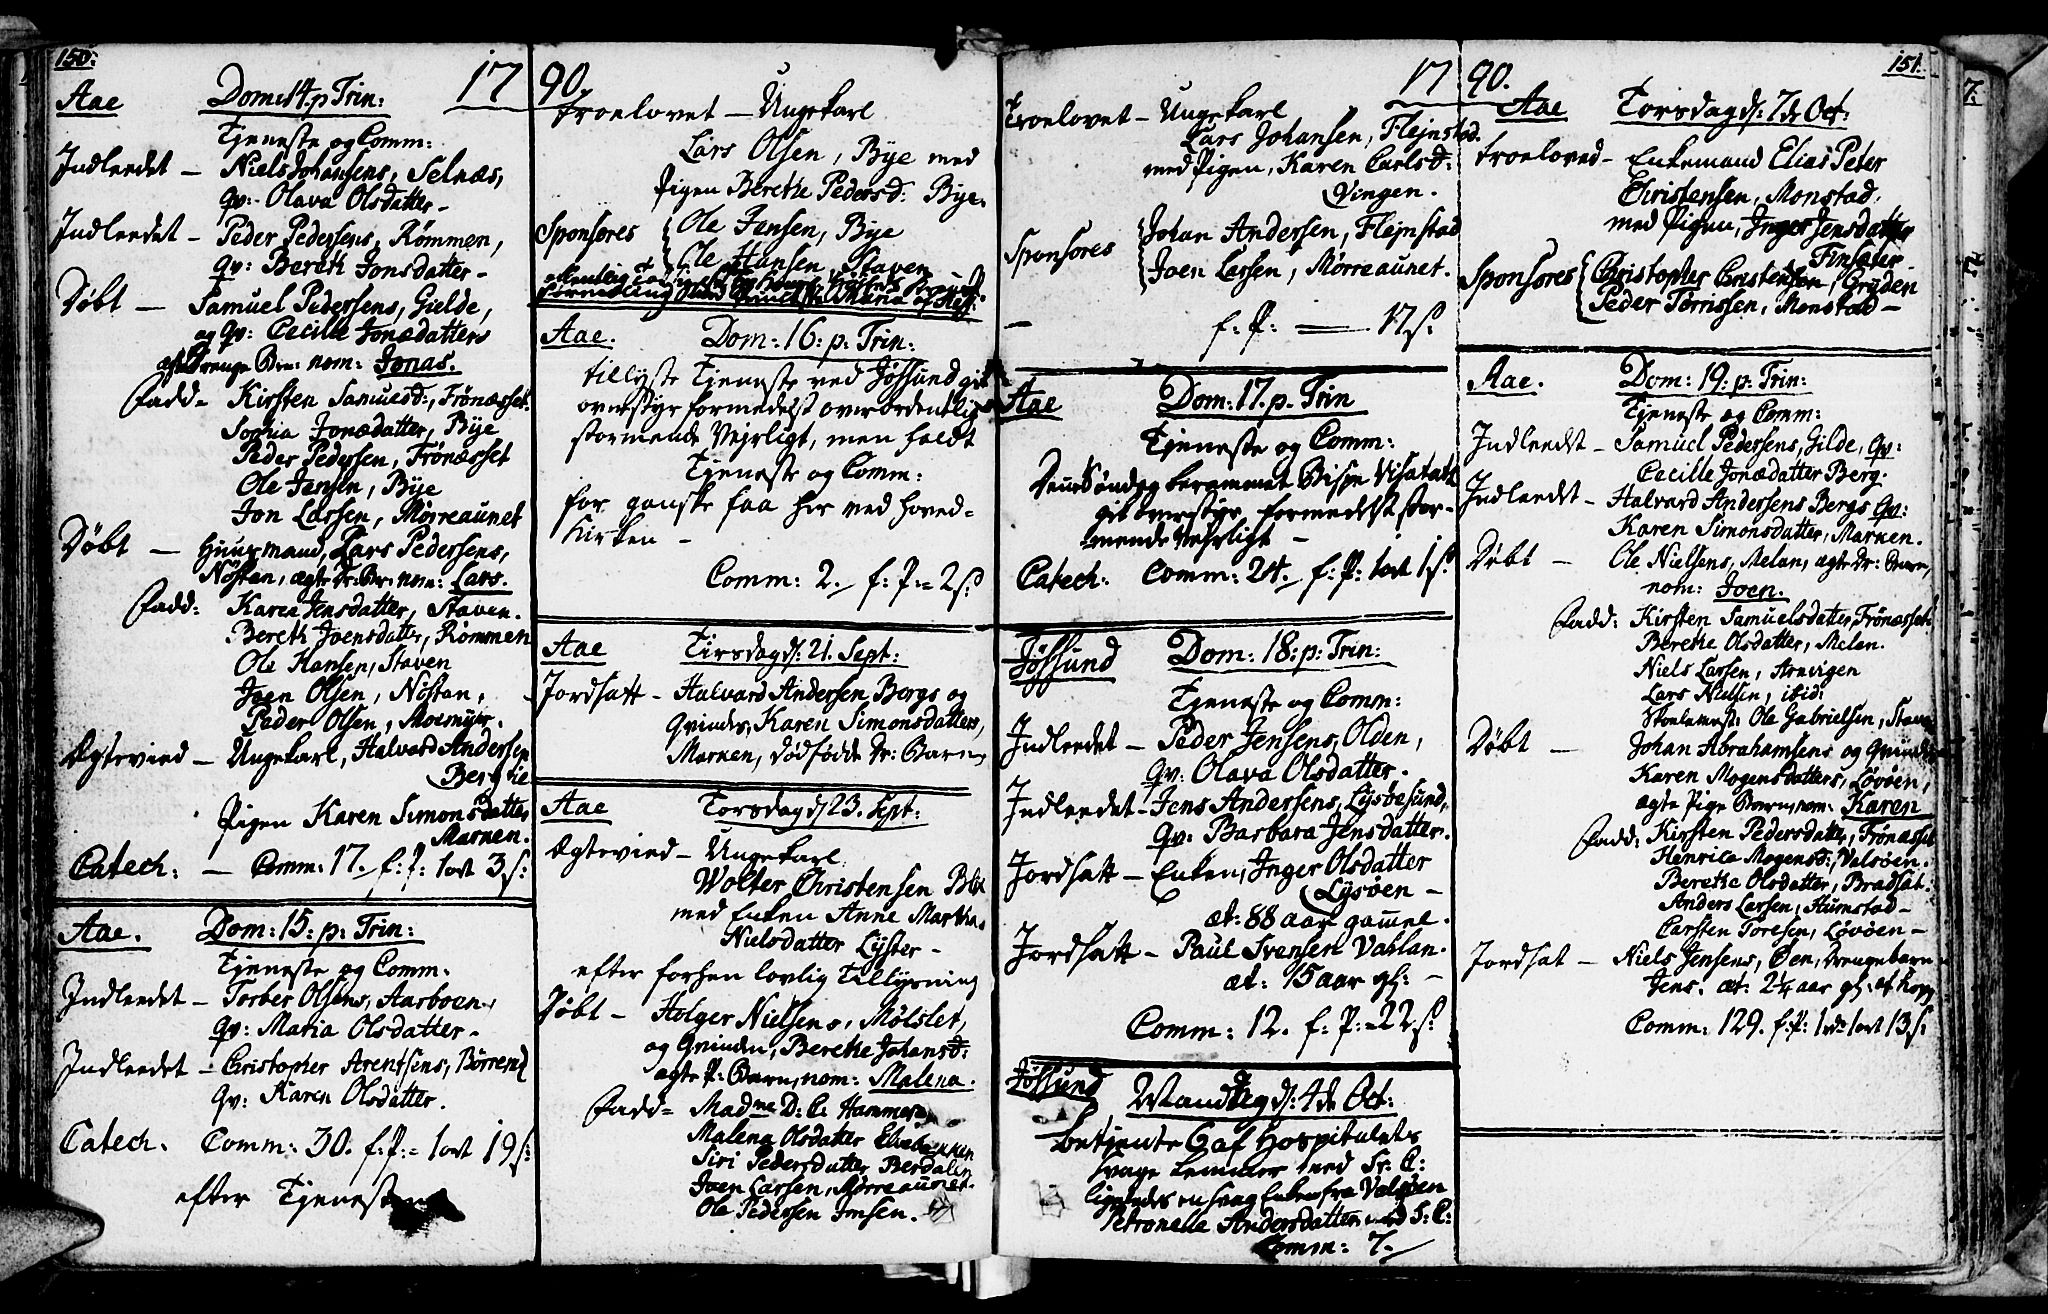 150:
1790.
Aae Dom: 14 p Trin:
Tjeneste og Comm:
Indleedet – Niels Johansens, Selnæs,
qv:- Olava Olsdatter –
Indleedet – Peder Pedersens, Rømmen,
qv: Bereth Jonsdatter –
Døbt – Samuel Pedersens, Gielde,
og qv: Cecille Jonædatters
ægte Drenge Brn: nom: Jonas.
Fadd= Kirsten Samuelsd:, Frønæsset.
Sophia Jonædatter, Bye
Peder Pedersen, Frönæsset
Ole Jensen, Bye
Jon Larsen, Mørreaunet
Døbt – Huusmand, Lars Pedersens,
Nöstan, ægte Dr: Br: nom: Lars.
Fadd: Karen Jensdatter, Staven.
Bereth Joensdatter, Rømmen
Ole Hansen, Staven
Joen Olsen, Nöstan,
Peder Olsen, Moemyr.
Ægtevied – Ungekarl, Halvard Andersen
Berg
Pigen Karen Simonsdatter
Marnen.
Catech: – Comm: 17. f: P: 1 ort 3 s:
Aae. Dom: 15: p: Trin:
Tjeneste og Comm.
Indleedet – Torber Olsens, Aarboen,
qv: Maria Olsdatter –
Indleedet – Christopher Arentsens, Börrend
qv: Karen Olsdatter.
Catech. Comm: 30. f: P:= 1 ort 19 s:
efter Tjenesten
Troelovet – Ungekarl
Lars Olsen, Bye med
Pigen Berethe Pedersd: Bye.
Sponsores Ole Jensen, Bye
Ole Hansen, Staven
Aae. Dom: 16: p: Trin:
tillyste Tjeneste ved Jøssund gik
overstyr formedelst overordentlig
stormende Vejrligt, men holdt
Tjeneste og Comm:
for ganske faa her ved Hoved=
Kirken –
Comm: 2. f: P:= 2 s:
Aae Tirsdag d: 21. Sept:
Jordsatt – Halvard Andersen Bergs og
Qvindes, Karen Simonsdatters,
Marnen, dödfødde Dr: Barn
Aae Torsdag d 23. Sept:
Ægtevied – Ungekarl
Wolter Christensen
med Enken Anne Martha
Nielsdatter Lyster –
efter forhen lovlig Tillysning
Døbt – Holger Nielsens, Mölslet,
og Qvinden, Berethe Johansd:
ægte P: Barn, nom: Malena.
Fadd= Madme D: C. Hammer
Malena Olsdatter
Siri Pedersdatter Berdalen
Joen Larsen, Mørreaunet.
Ole Pedersen Imsen.
151.
1790.
Troelovet – Ungekarl
Lars Johansen, Flejnstad.
med Pigen, Karen Carlsd:
Vingen.
Sponsores Johan Andersen, Flejnstad
Joen Larsen, Mørreaunet.
– f: P: – 17 s:
Aae Dom: 17. p. Trin
Tjeneste og Comm:
Denne Søndag berammet Bispe Visitatz
gik overstyr, formedelst stor-
mende Vejrligt –
Catech. Comm: 24. f: P: 1 ort 1 s:
Jøssund Dom: 18: p: Trin:
Tjeneste og Comm:
Indleedet – Peder Jensens, Olden,
qv: Olava Olsdatter.
Indleedet – Jens Andersens, Lysøesund,
qv: Barbara Jensdatter.
Jordsatt – Enken, Inger Olsdatter
Lysøen –
æt: 88 aar gamel.
Jordsatt – Paul Svensen Vahlan.
æt: 15 aar gl: –
Comm: 12. f: P:= 22 s:
Jøssund Mandag d: 4de Oct:
betjente 6 af Hospitalets
svage Lemmer med S: C:
ligeledes en svag Enke fra Valsøen
Petronelle Andersdatter med S: C:
Comm: 7.
Aae Torsdag d: 7de Oct:
Troeloved – Enkemand Elias Peter
Christensen, Monstad.
med Pigen, Inger Jensdatter
Finsæter
Sponsores Christopher Christensen, Gryden
Peder Torrissen, Monstad –
Aae. Dom: 19: p: Trin:
Tjeneste og Comm:
Indleedet – Samuel Pedersens, Gilde, qv:
Cecille Jonædatter Berg.
Indleedet – Halvard Andersens Bergs qv:
Karen Simonsdatter, Marnen.
Døbt – Ole Nielsens, Melan, ægte Dr: Barn,
nom: Joen.
Fadd: Kirsten Samuelsdatter, Frønæsset
Berethe Olsdatter, Melan.
Niels Larsen, Arnvigen
Lars Nielsen, ibid:
Skolemest: Ole Gabrielsen, Staven
Døbt – Johan Abrahamsens og Qvinde
Karen Mogensdatters, Løvøen,
ægte Pige Barn, nom: Karen
Fadd: Kirsten Pedersdatter, Frønæsset
Henrica Mogensd:, Valsøen.
Berethe Olsdatter, Bradsat.
Anders Larsen, Humstad –
Carsten Toresen, Løvøen –
Jordsat – Niels Jensens, Øen, Drengebarn
Jens. æt: 2¼ aar gl: af Kopp
Comm: 129. f: P: 1 rdr 1 ort 13 s: